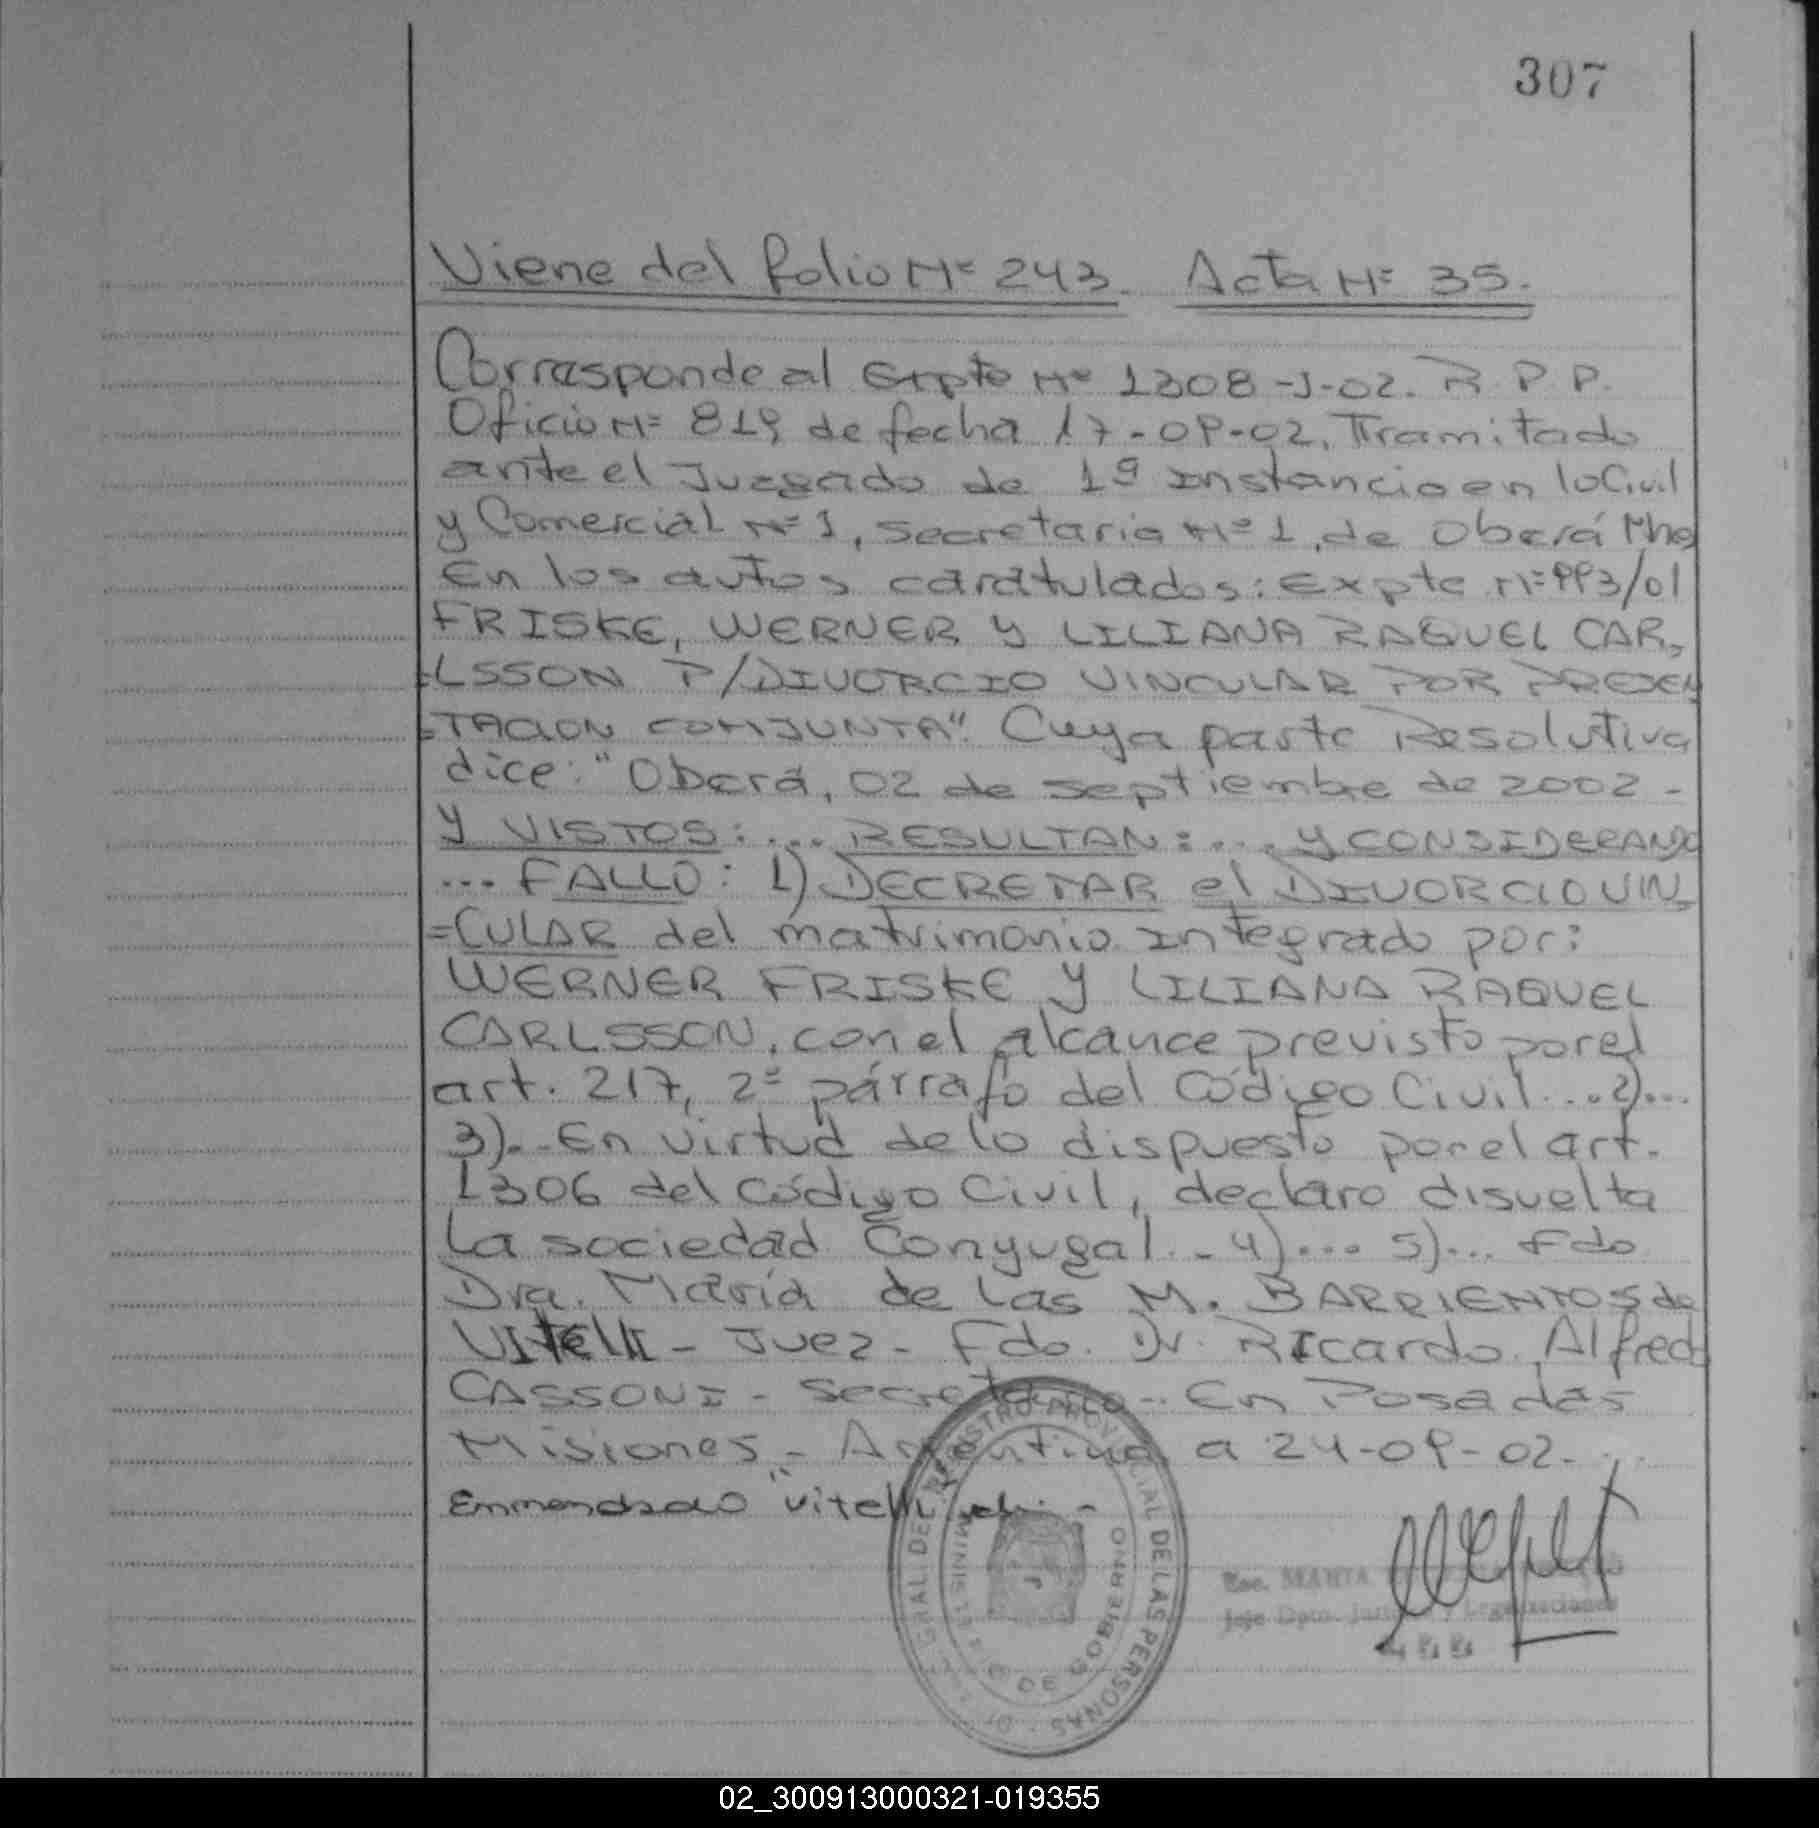 307
Viene del folio Nº 243. Acta Nº 35.
Corresponde al Expte Nº 1308-J-02. R.P.P.
Oficio Nº 819 de fecha 17-09-02. Tramitado
ante el Juzgado de 1ª Instancia en lo Civil
y Comercial Nº 1, Secretaria Nº 1, de Oberá Mnes
En los autos caratulados: Expte Nº 993/01
FRISKE, WERNER Y LILIANA RAQUEL CAR,
=LSSON P/DIVORCIO VINCULAR POR PRESEN
=TACION CONJUNTA". Cuya parte Resolutiva
dice: "Oberá, 02 de septiembre de 2002 -
Y VISTOS: ... RESULTAN: ... Y CONSIDERANDO
... FALLO: 1) DECRETAR el DIVORCIO VIN,
=CULAR del matrimonio integrado por:
WERNER FRISKE Y LILIANA RAQUEL
CARLSSON, con el alcance previsto por el
art. 217, 2º párrafo del Código Civil ... 2)...
3)... En virtud de lo dispuesto por el art.
1306 del Código Civil, declaro disuelta
la sociedad Conyugal. - 4)... 5)... Fdo
Dra. María de las M. BARRIENTOS de
VITELLI - Juez - Fdo. Dr. Ricardo Alfredo
CASSONI - Secretario - En Posadas
Misiones - Argentina a 24-09-02. -
Enmendado "Vitelli" vale. -
REGISTRO PROVINCIAL DE LAS PERSONAS
DE GOBIERNO
MARIA
02_300913000321-019355